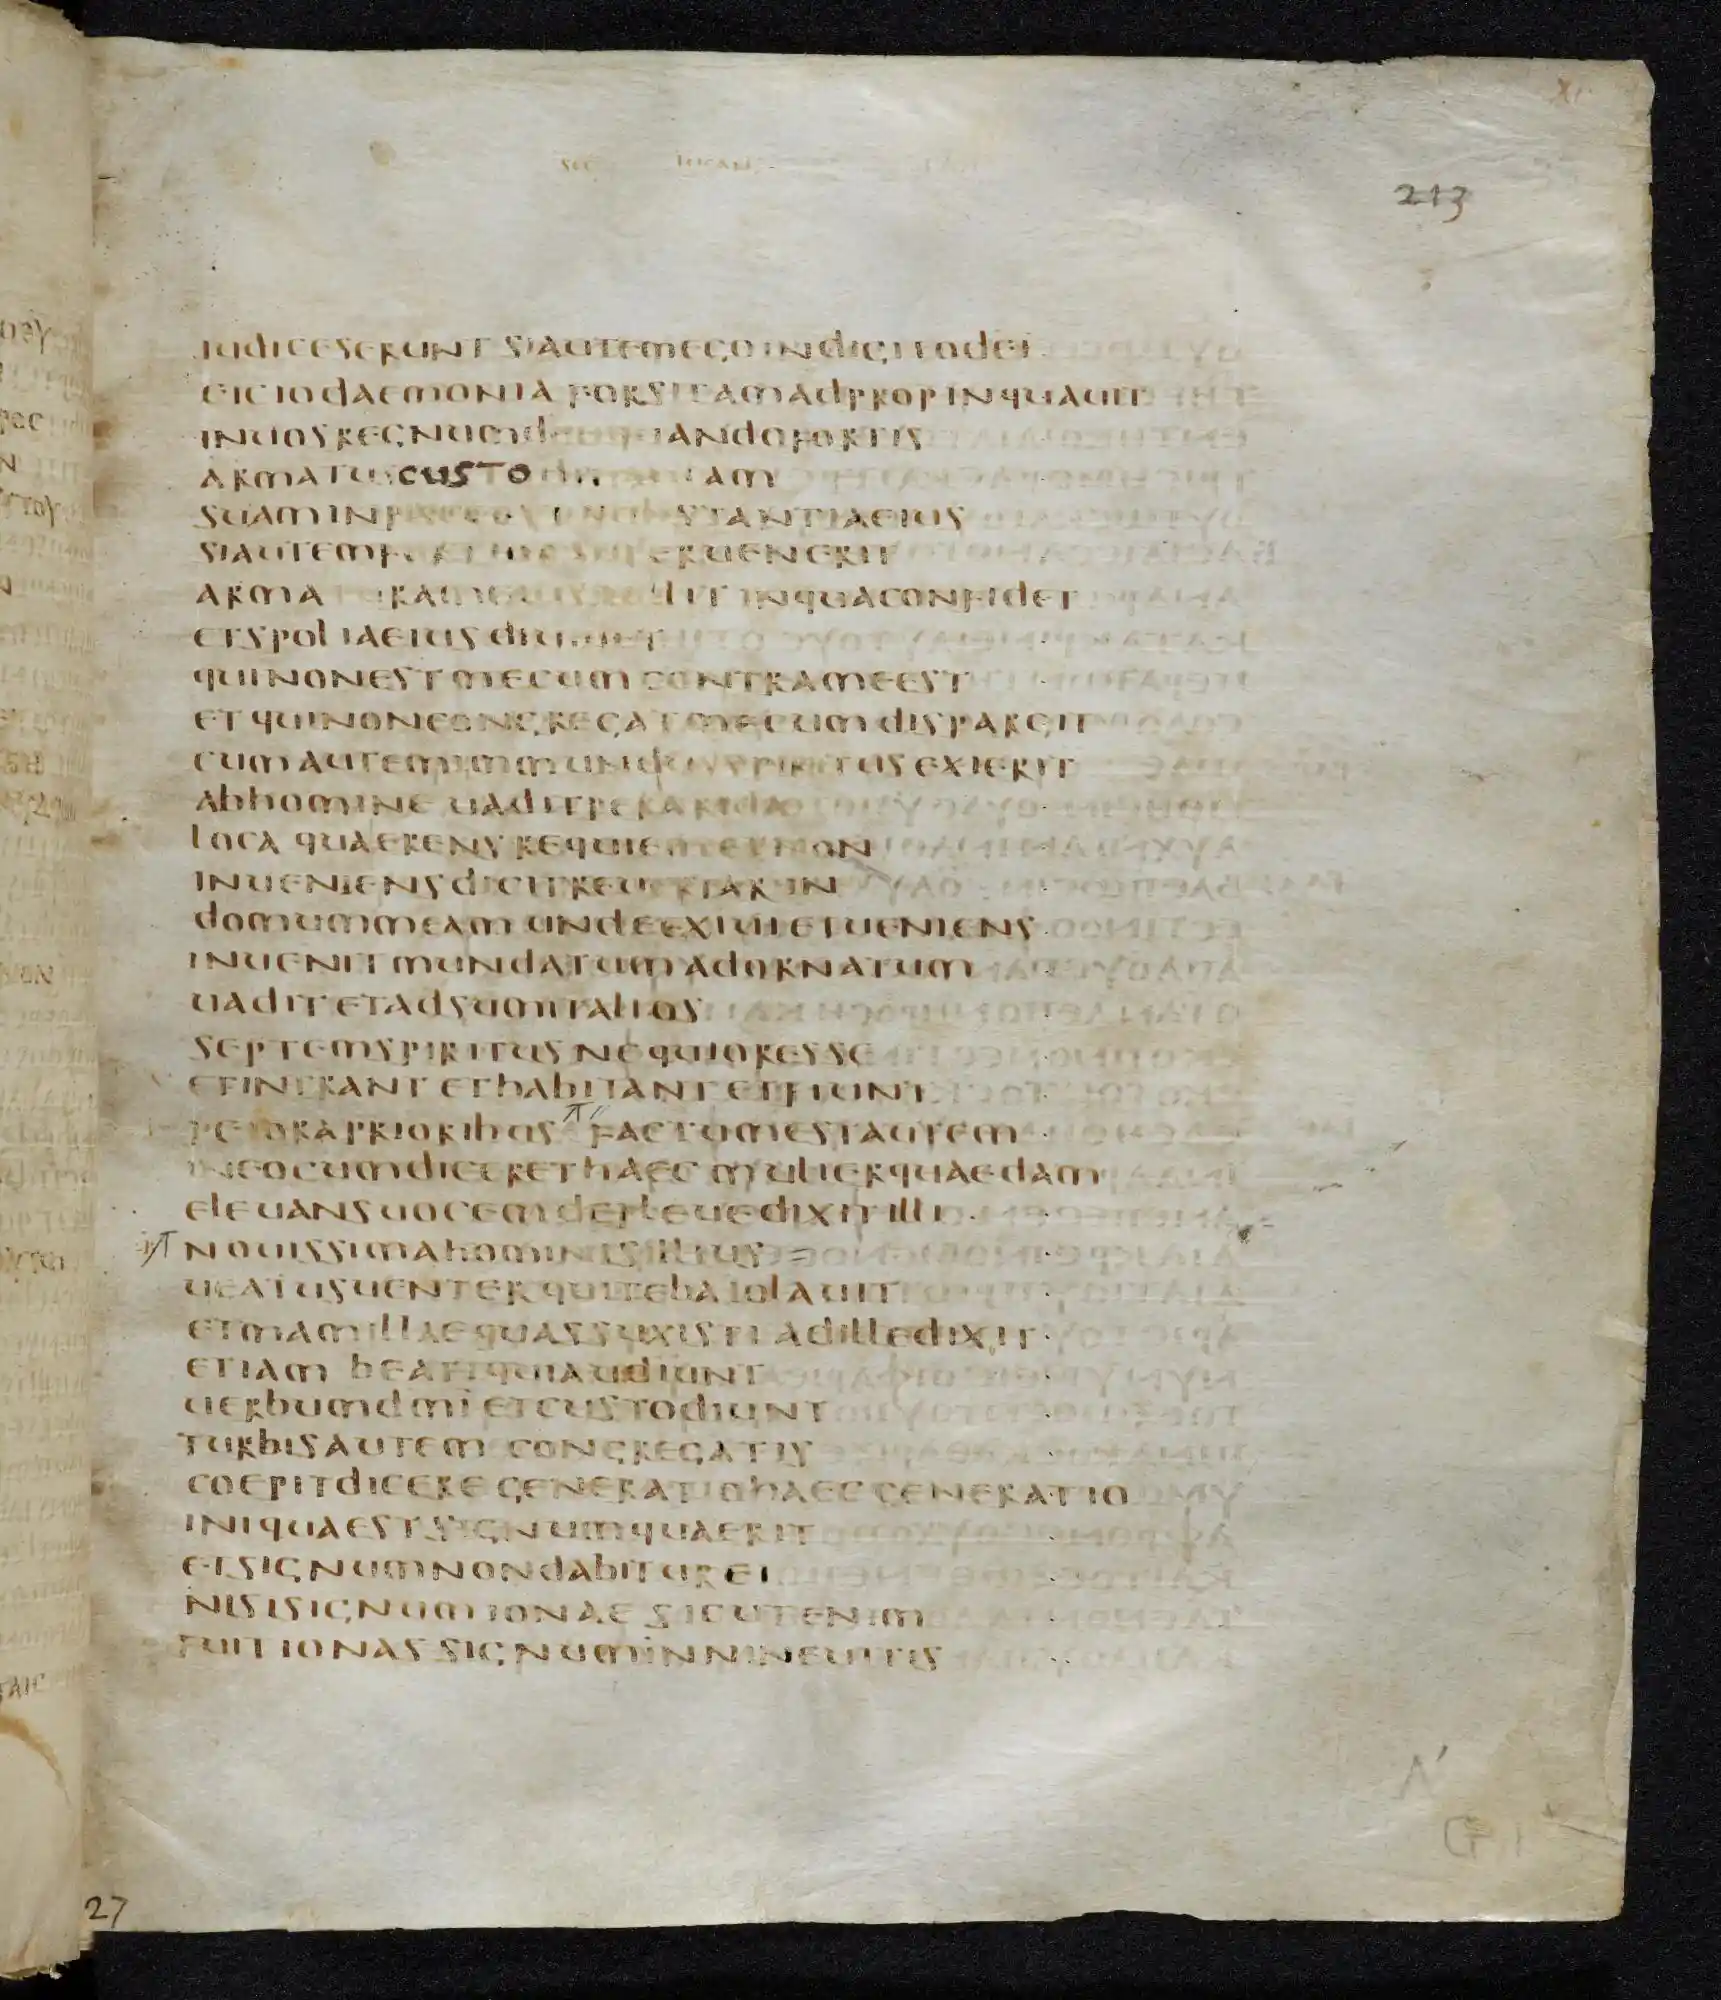 213
iudiceserunt siautemego indigitodei
eiciodaemonia forsitamadpropinquauit
inuosregnumd quandofortis
armatus custo am
suamin stantiaeius
siautemf superuenerit
armaturam inquaconfidet
etspoliaeius
quinonestmecum contrameest
etquinoncongregatmecumdispargit
cumautemimmundusspiritusexierit
abhomine uaditperarida
loca quaerensrequiemetsinon
inueniensdicitreuertarin
domummeam undeexiuietueniens
inuenitmundatumadornatum
uaditetadsumitalios
septemspiritusnequioresse
etintrant ethabitantetfiunt
peioraprioribus factumestautem
ineocumdiceret haec mulierquaedam
eleuansuocemdeplebedixitilli
nouissimahominisillius
ueatusuenterquitebaiolauit
etmamillaequassuxisti adilledixit
etiam beatiquiaudiunt
uerbumdmi etcustodiunt
turbisautem congregatis
coepitdicere generatiohaec generatio
iniquaest signumquaerit
etsignumnondabiturei
nisisignumionae sicutenim
fuitionas signuminnineuitis
27